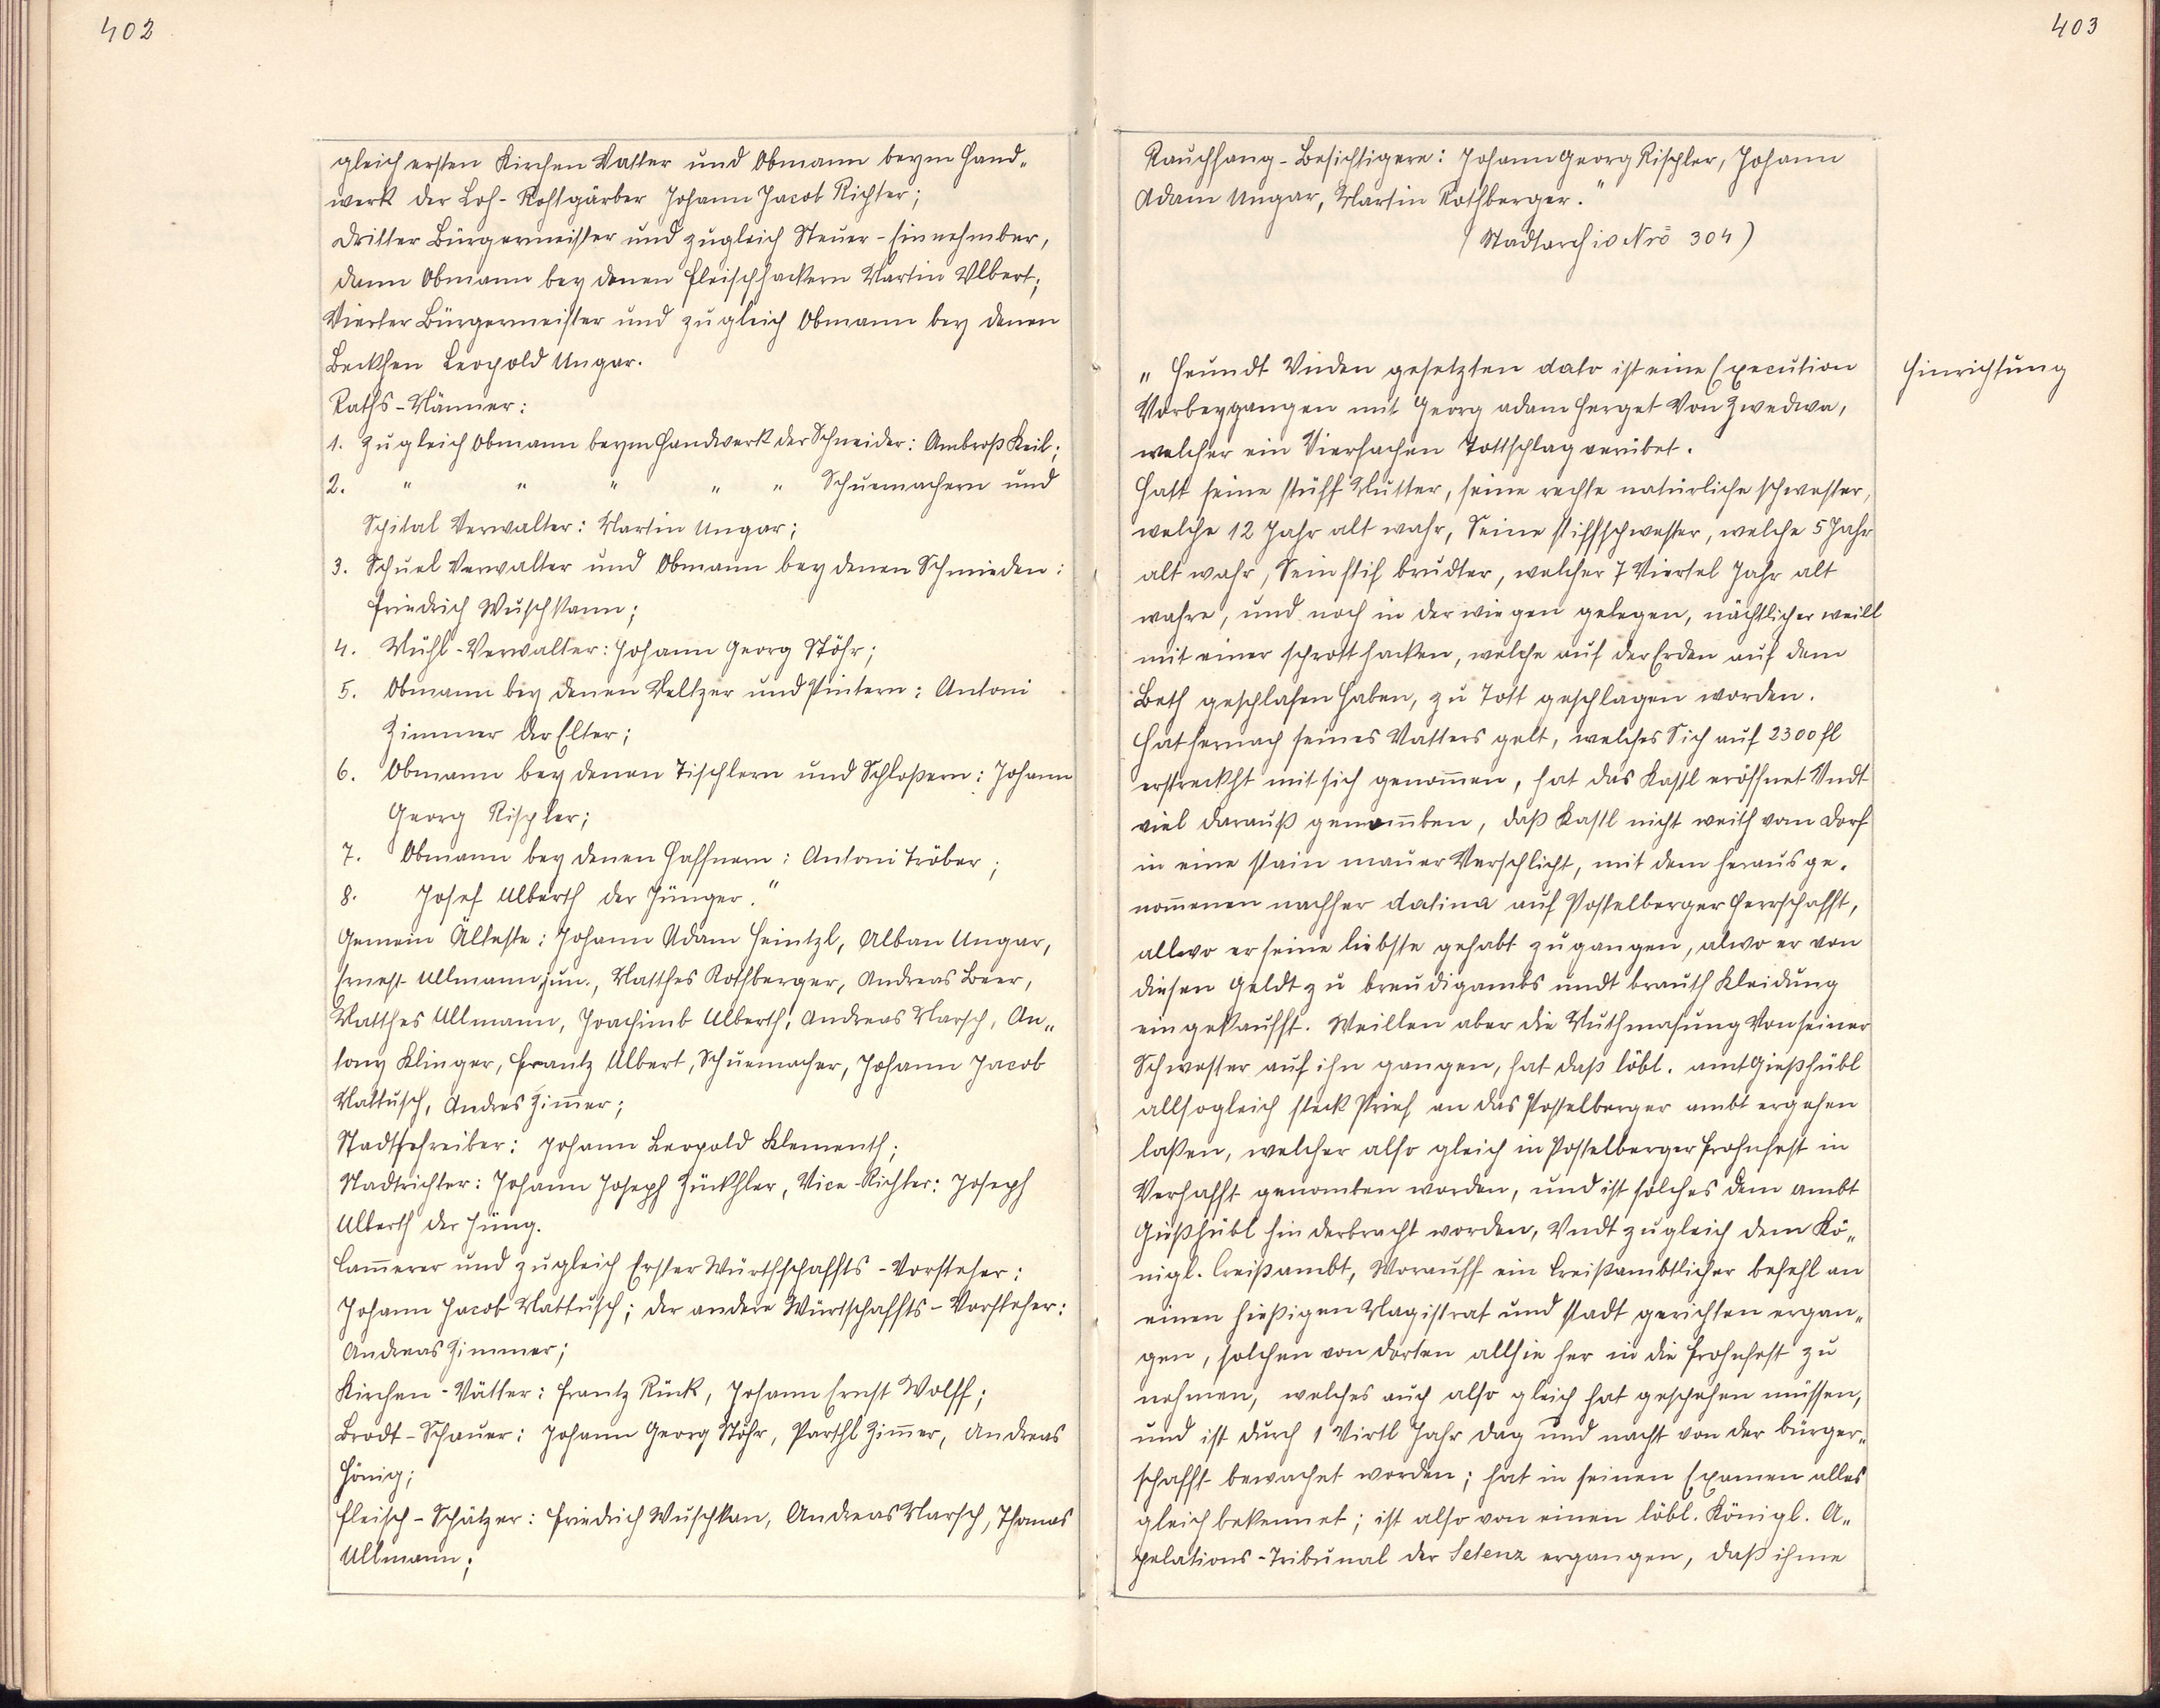 402
gleich ersten Kirchen Vatter und Obmann beym Hand„
werk der Loh-Rohtgärber Johann Jacob Richter;
dritter Bürgermeister und zugleich Steuer-Einnehmber,
dann Obmann bey denen Fleischhackern Martin Ulbert;
Vierter Bürgermeister und zugleich Obmann bey denen
Beckhen Leopold Ungar.
Raths-Männer:
1. Zugleich Obmann beym Handwerk der Schneider: Ambroß Keil;
2. " " " " " Schuemachern und
Spital Verwalter: Martin Ungar;
3. Schuel Verwalter und Obmann bey denen Schmieden:
Friedrich Wuschkann;
4. Mühl-Verwalter: Johann Georg Stöhr;
5. Obmann bey denen Beltzer und Pintern: Antoni
Zimmer der Elter;
6. Obmann bey denen Tischlern und Schloßern: Johann
Georg Rischler;
7. Obmann bey denen Haffnern: Antoni Tröber;
8. Josef Ulberth der Jünger."
Gemein Älteste: Johann Adam Heintzl, Alban Ungar,
Ernest Ullmann jun., Matthes Rothberger, Andreas Beer,
Matthes Ullmann, Joachimb Ulberth, Andreas Marsch, An„
tony Klinger, Frantz Ulbert, Schuemacher, Johann Jacob
Mattusch, Andres Zim̄er;
Stadtschreiber: Johann Leopold Klementh;
Stadtrichter: Johann Joseph Zückhler, Vice-Richter: Joseph
Ulberth der Jüng.
Cam̄erer und zugleich Erster Würthschaffts-Vorsteher:
Johann Jacob Mattusch; der andere Würtschaffts-Vorsteher:
Andreas Zimmer;
Kirchen-Vätter: Frantz Rück, Johann Ernst Wolff;
Brodt-Schauer: Johann Georg Stöhr, Parthl Zim̄er, Andreas
Hönig;
Fleisch-Schätzer: Friedrich Wuschkan, Andreas Marsch, Thomas
Ullmann;
403
Rauchfang-Besichtigere: Johann Georg Rischler, Johann
Adam Ungar, Martin Rothberger."
(Stadtarchiv Nrō 304)
Hinrichtung
„Heundt Unden gesetzten dato ist eine Execution
Vorbeygangen mit Georg adam Herget Von Zwedwa,
welcher ein Vierfachen Tottschlag verübet.
Hatt seine stüff Mutter, seine rechte natürliche schwester,
welche 12 Jahr alt wahr, Seine stiffschwester, welche 5 Jahr
alt wahr, Sein stif brudter, welcher 7 Viertel Jahr alt
wahre, und noch in der wiegen gelegen, nächtlicher weill
mit einer schrotthacken, welche auf der Erden auf dem
Beth geschlafen haben, zu Tott geschlagen worden.
Hat hernach seines Vatters gelt, welches Sich auf 2300 fl
erstreckht mit sich genom̄en, hat das Kastl eröffnet Undt
viel darauß genom̄ben, daß Kastl nicht weith vom Dorf
in eine stain mauer Verschlicht, mit dem heraus ge„
nom̄enen nachher datina auf Postelberger Herrschafft,
allwo er seine liebste gehabt zugangen, alwo er von
diesen Geldt zu breudigambs undt brauth Kleidung
eingekaufft. Weillen aber die Muthmasung Von seiner
Schwester auf ihn gangen, hat daß löbl. amt Gießhübl
allsogleich steck Prief an das Postelberger ambt ergehen
laßen, welcher also gleich in Postelberger Frohnfest in
Verhafft genomben worden, und ist solches dem ambt
Güßhübl hin derbracht worden, Undt zugleich dem Kö„
nigl. Creißambt, Worauff ein Creißambtlicher befehl an
einen hießigen Magistrat und stadt gerichten ergan„
gen, solchen von dorten allhie her in die Frohnfest zu
nehmen, welches auch also gleich hat geschehen müssen,
und ist durch 1 Virtl Jahr dag und nacht von der bürger„
schafft bewachet worden; hat in seinen Examen alles
gleich bekennet; ist also von einen löbl. Königl. A„
pelations-Tribunal der Setenz ergangen, daß ihme